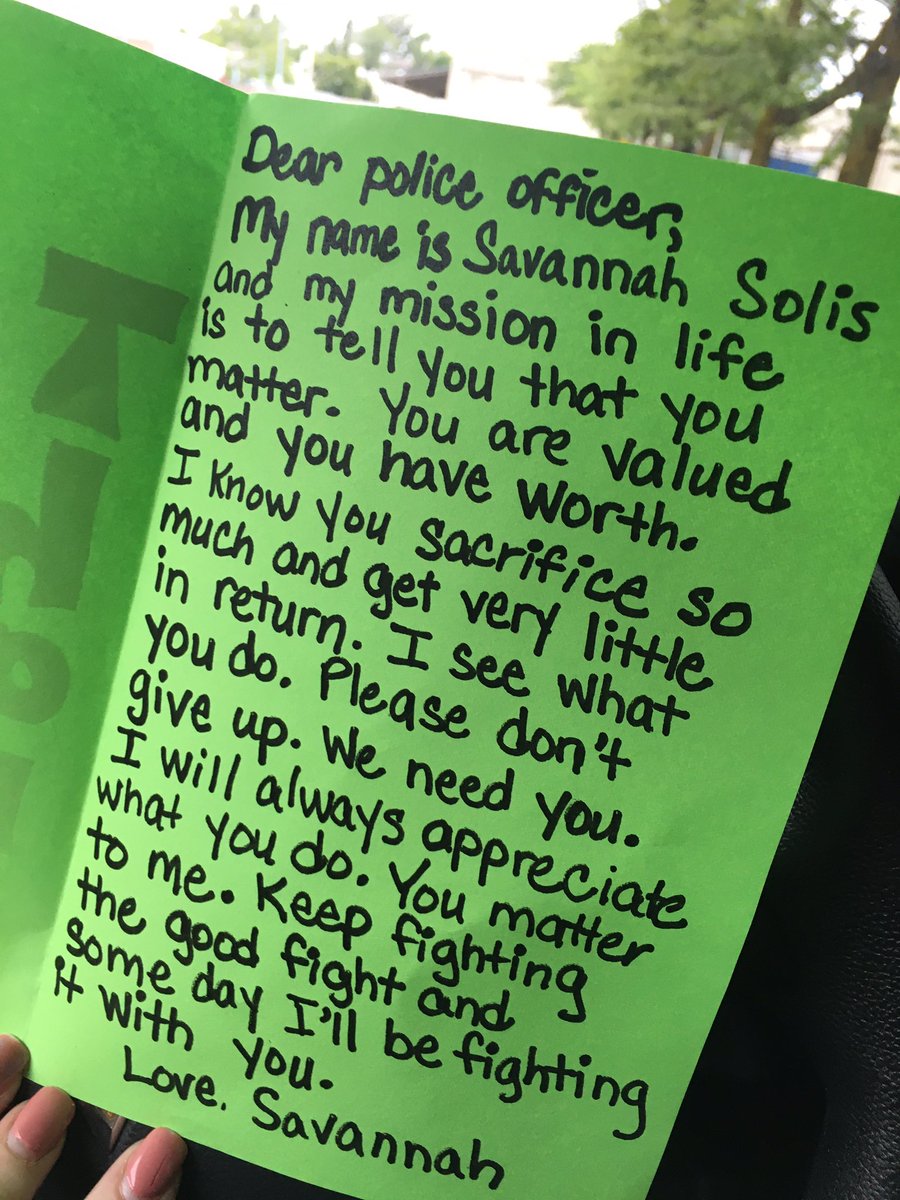 Dear police officer,
My name is Savannah Solis
and my mission in life
is to tell you that you
matter. You are valued
and you have worth.
I know you sacrifice so
much and get very little
in return. I see what
you do. Please don't
give up. We need you.
I will always appreciate
what you do. You matter
to me. Keep fighting
the good fight and
some day I'll be fighting
it with you.
Love. Savannah